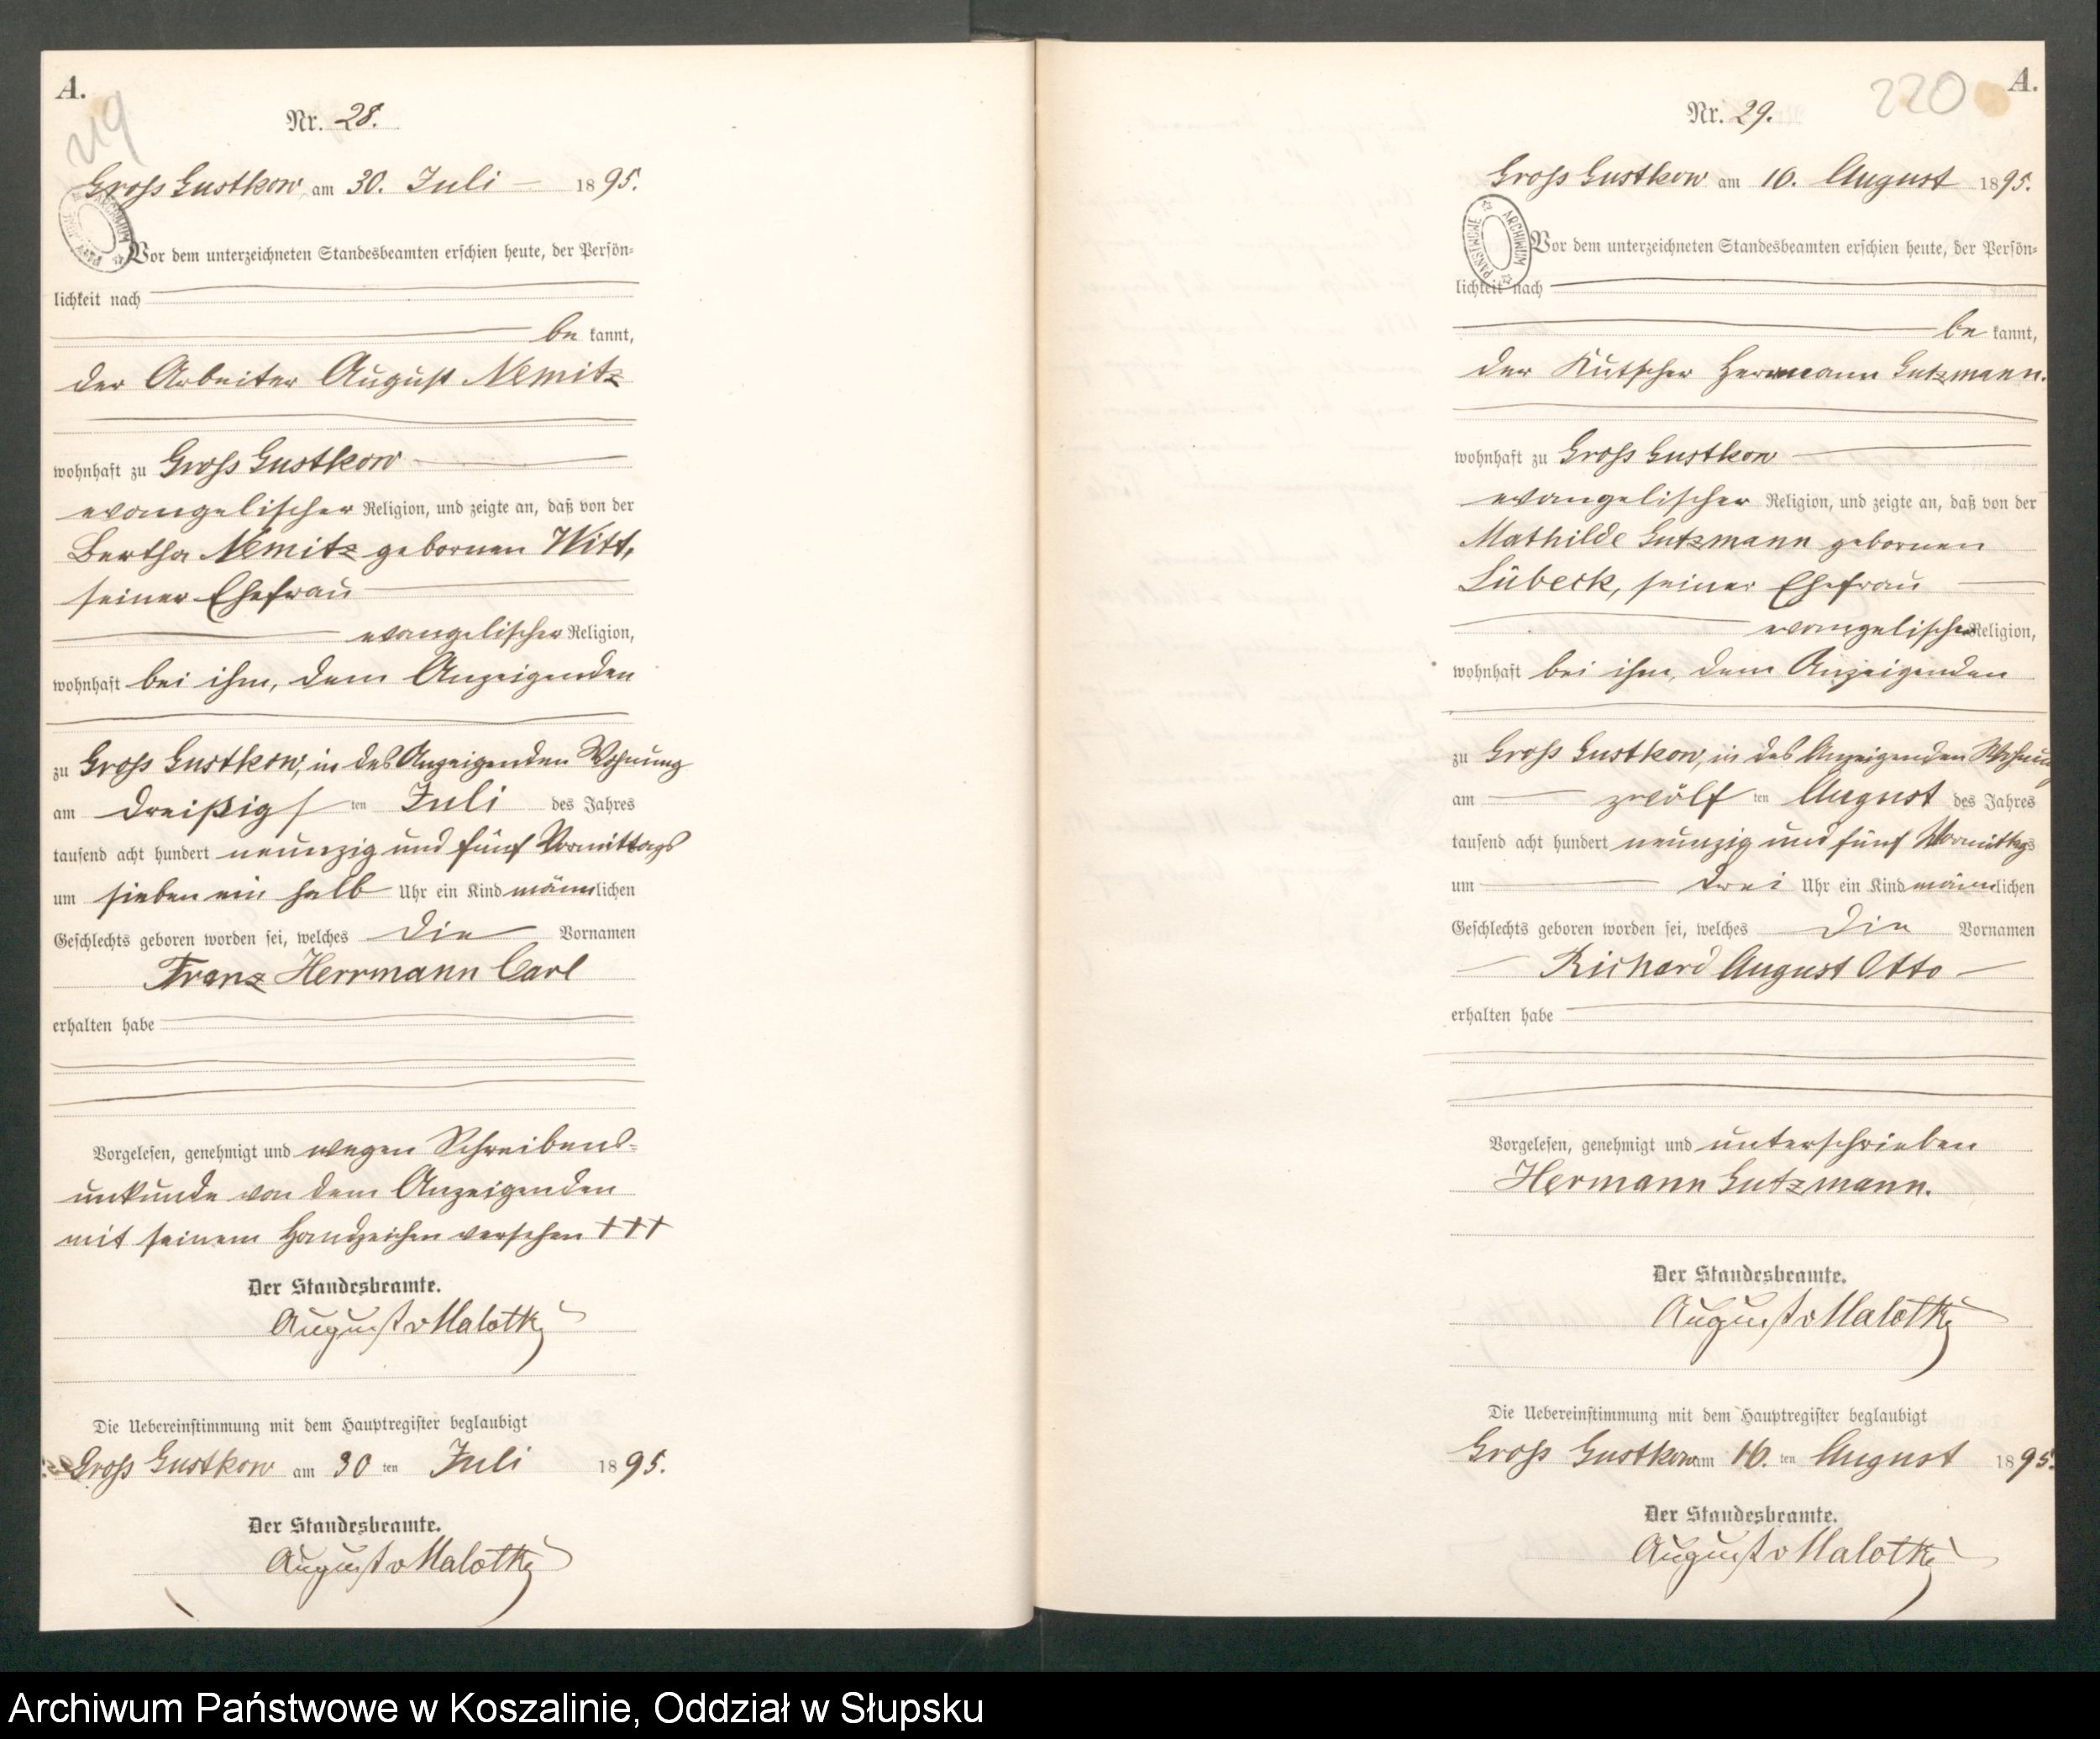 A.
219
Nr. 28.
Gross Gustkow am 30. Juli 1895.
PAŃSTWOWE ARCHIWUM
Vor dem unterzeichneten Standesbeamten erschien heute, der Persön-
lichkeit nach
be kannt,
der Arbeiter August Nemitz
wohnhaft zu Gross Gustkow
evangelischer Religion, und zeigte an, daß von der
Bertha Nemitz gebornen Witt,
seiner Ehefrau
evangelischer Religion,
wohnhaft bei ihm, dem Anzeigenden
zu Gross Gustkow, in des Anzeigenden Wohnung
am dreißigs ten Juli des Jahres
tausend acht hundert neunzig und fünf Vormittags
um sieben ein halb Uhr ein Kind männlichen
Geschlechts geboren worden sei, welches die Vornamen
Franz Herrmann Carl
erhalten habe
Vorgelesen, genehmigt und wegen Schreibens-
unkunde von dem Anzeigenden
mit seinem Handzeichen versehen +++
Der Standesbeamte.
August v Malottki
Die Uebereinstimmung mit dem Hauptregister beglaubigt
Gross Gustkow am 30 ten Juli 1895.
Der Standesbeamte.
August v Malottki
220
A.
Nr. 29.
Gross Gustkow am 16. August 1895.
PAŃSTWOWE ARCHIWUM
Vor dem unterzeichneten Standesbeamten erschien heute, der Persön-
lichkeit nach
be kannt,
der Kutscher Hermann Gutzmann.
wohnhaft zu Gross Gustkow
evangelischer Religion, und zeigte an, daß von der
Mathilde Gutzmann gebornen
Lübeck, seiner Ehefrau
evangelischer Religion,
wohnhaft bei ihm, dem Anzeigenden
zu Gross Gustkow, in des Anzeigenden Wohnung
am zwölf ten August des Jahres
tausend acht hundert neunzig und fünf Vormittags
um drei Uhr ein Kind männlichen
Geschlechts geboren worden sei, welches die Vornamen
Richard August Otto
erhalten habe
Vorgelesen, genehmigt und unterschrieben
Hermann Gutzmann.
Der Standesbeamte.
August v Malottki
Die Uebereinstimmung mit dem Hauptregister beglaubigt
Gross Gustkow am 16. ten August 1895.
Der Standesbeamte.
August v Malottki
Archiwum Państwowe w Koszalinie, Oddział w Słupsku